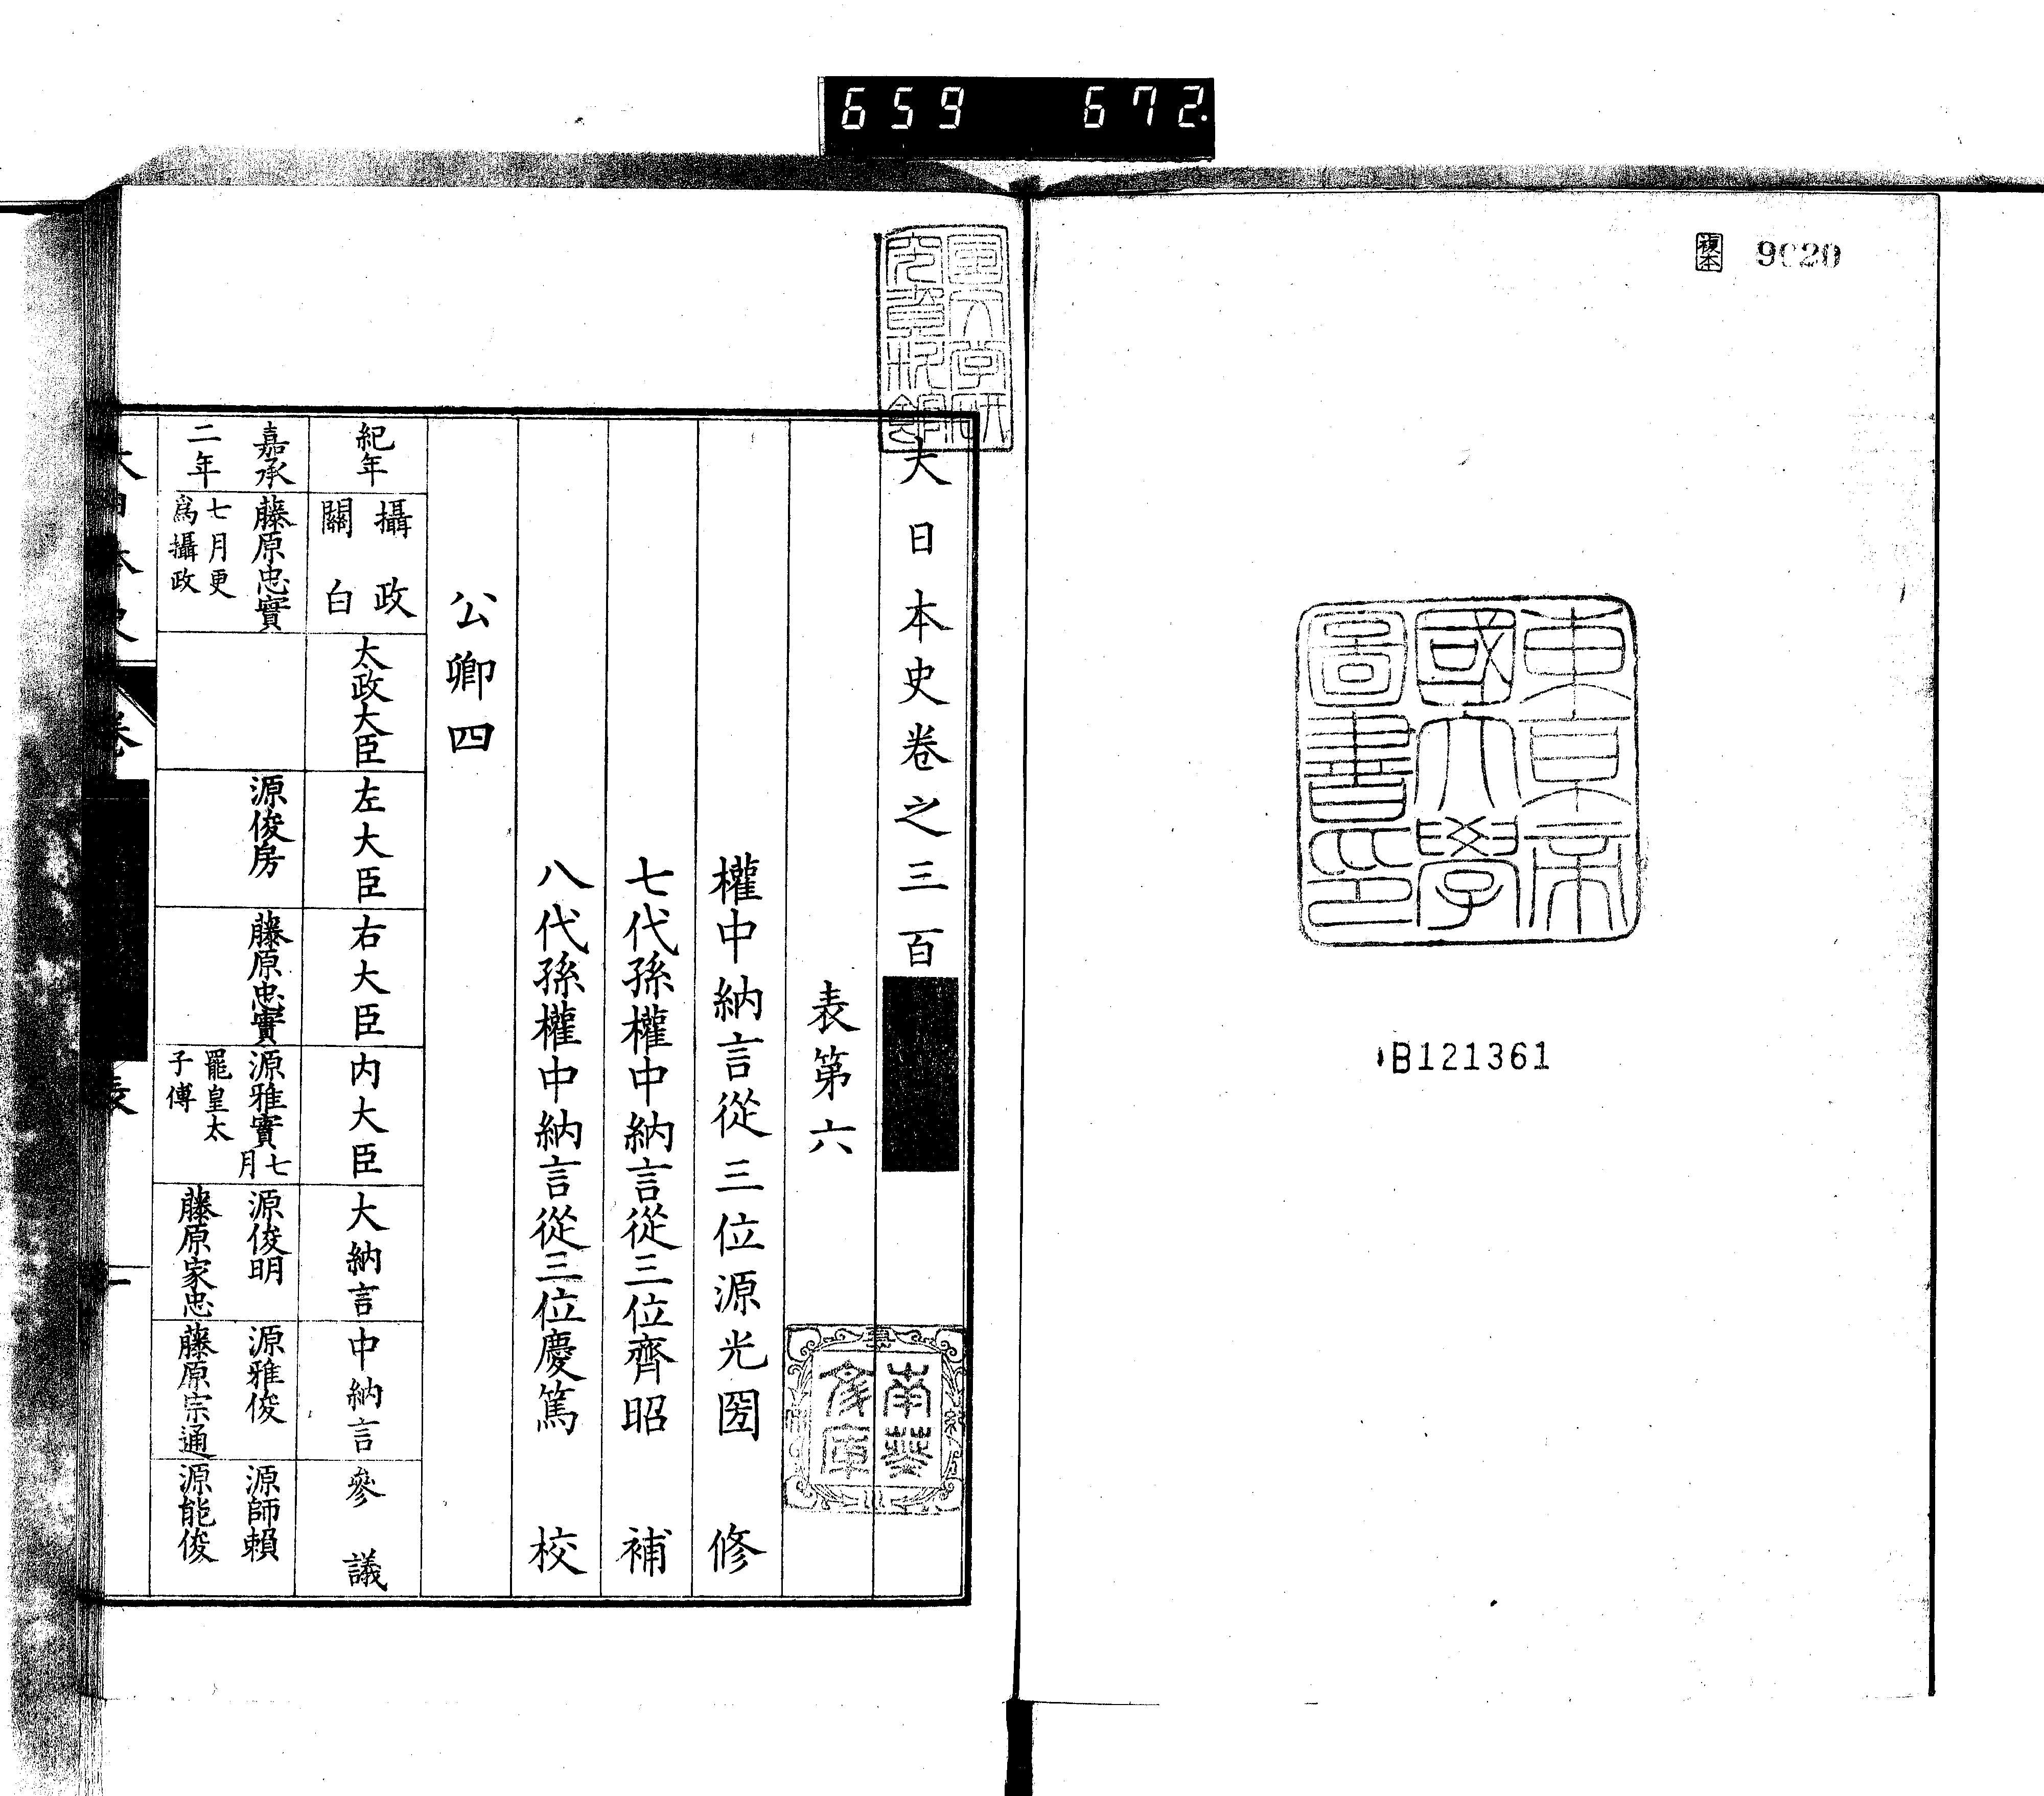 659 672.
複本 9020
東京帝
國大學
圖書印
B121361
大日本史卷之三百
表第六
權中納言從三位源光圀 修
七代孫權中納言從三位齊昭 補
八代孫權中納言從三位慶篤 校
公卿四
紀年
攝政
關白
太政大臣
左大臣
右大臣
内大臣
大納言
中納言
參議
嘉承
二年
藤原忠實
七月更
爲攝政
源俊房
藤原忠實
源雅實七月
罷皇太
子傅
源俊明
藤原家忠
源雅俊
藤原宗通
源師賴
源能俊